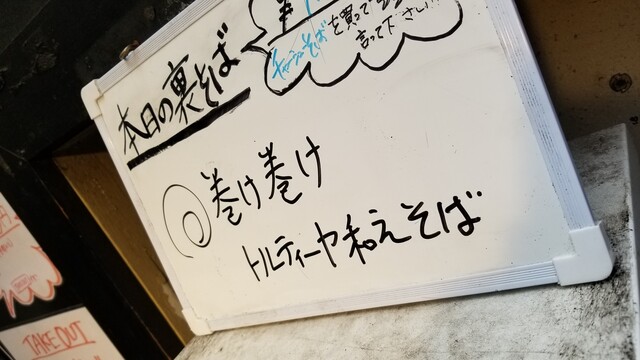 本日の裏そば
チャーシューそば
を買って
言って下さい!!
巻け巻け
トルティーヤ和えそば
TAKE OUT